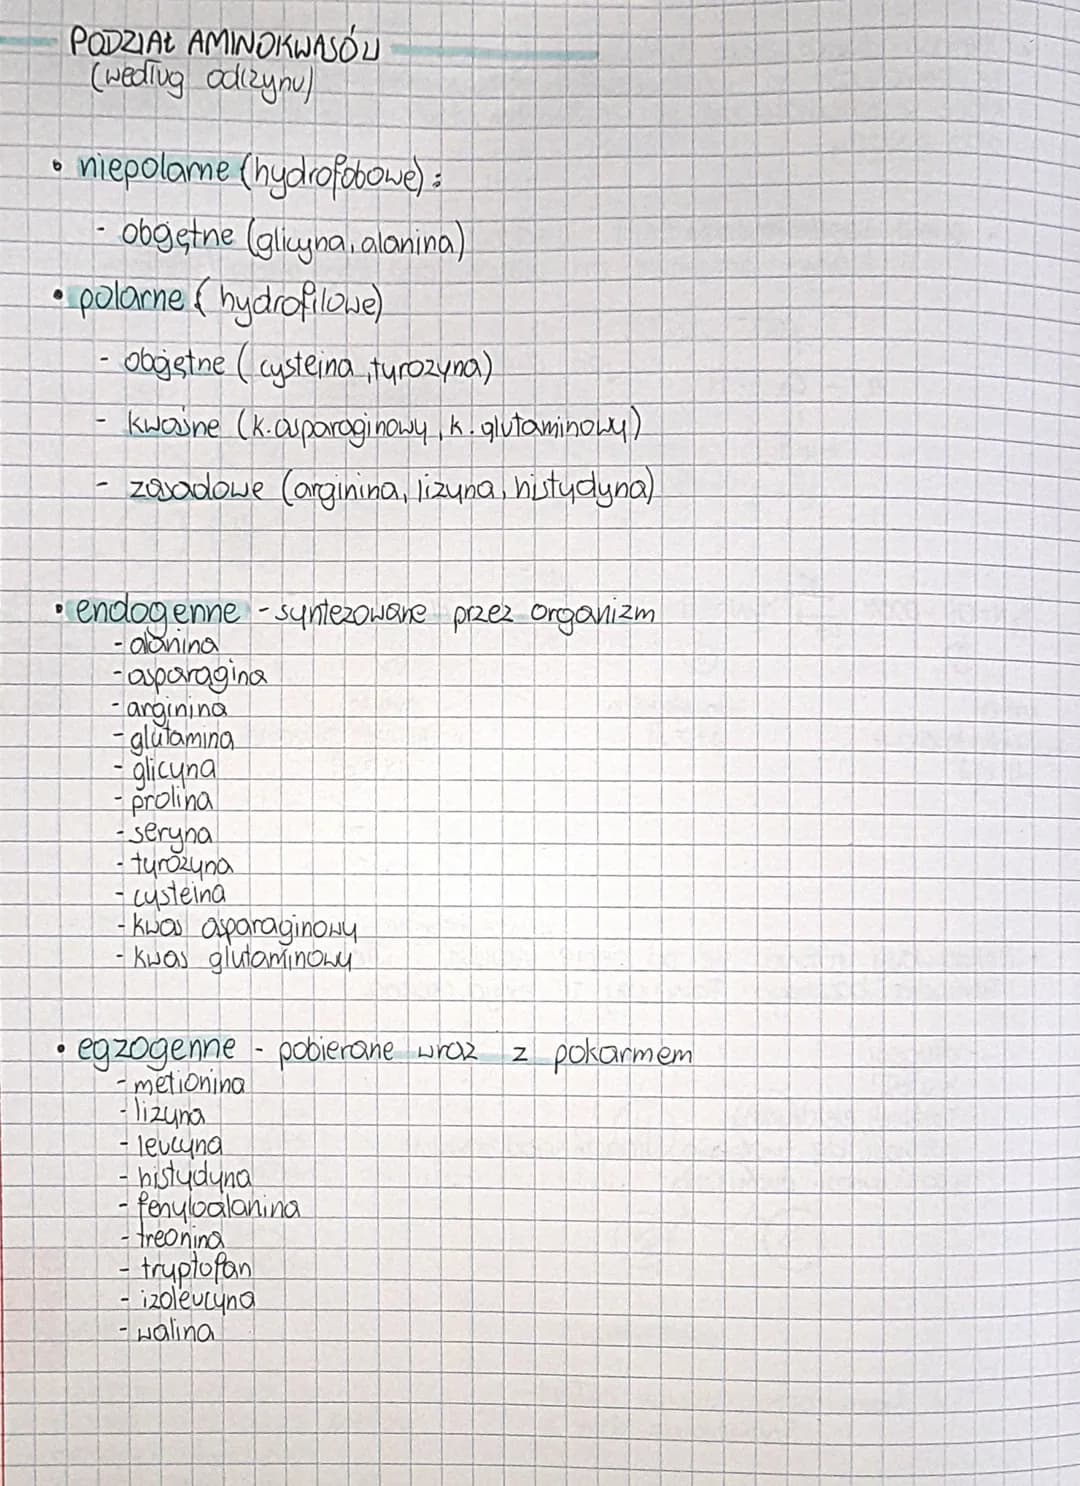 PODZIAŁ AMINOKWASÓW
(według odczynu)
• niepolarne (hydrofobowe):
- obojętne (glicyna, alanina)
• polarne (hydrofilowe)
- obojętne (cysteina, tyrozyna)
- kwaśne (k. asparaginowy, k. glutaminowy)
- zasadowe (arginina, lizyna, histydyna)
• endogenne - syntezowane przez organizm
- alanina
- asparagina
- arginina
- glutamina
- glicyna
- prolina
- seryna
- tyrozyna
- cysteina
- kwas asparaginowy
- kwas glutaminowy
• egzogenne - pobierane wraz z pokarmem
- metionina
- lizyna
- leucyna
- histydyna
- fenyloalanina
- treonina
- tryptofan
- izoleucyna
- walina